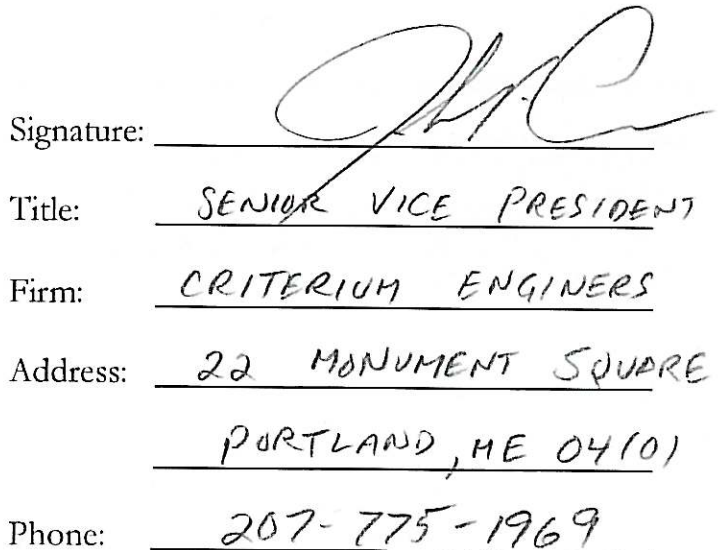 Signature:
Title: SENIOR VICE PRESIDENT
Firm: CRITERIUM ENGINERS
Address: 22 MONUMENT SQUARE
PORTLAND, ME 04101
Phone: 207-775-1969